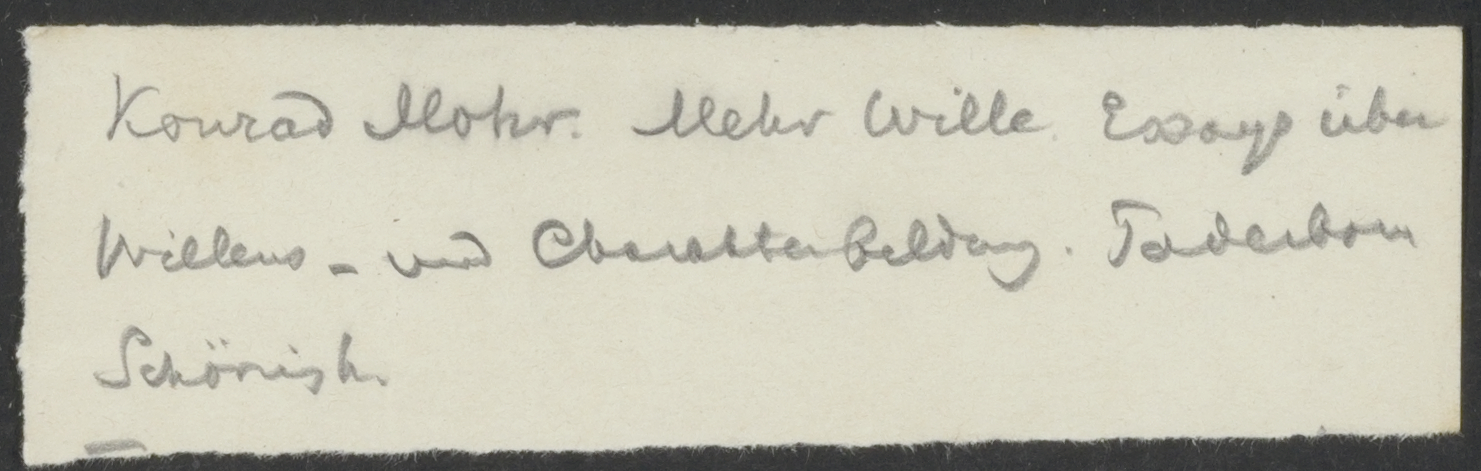 Konrad Mohr. Mehr Wille. Essays über
Willens- und Charakterbildung. Paderborn
Schöningh.